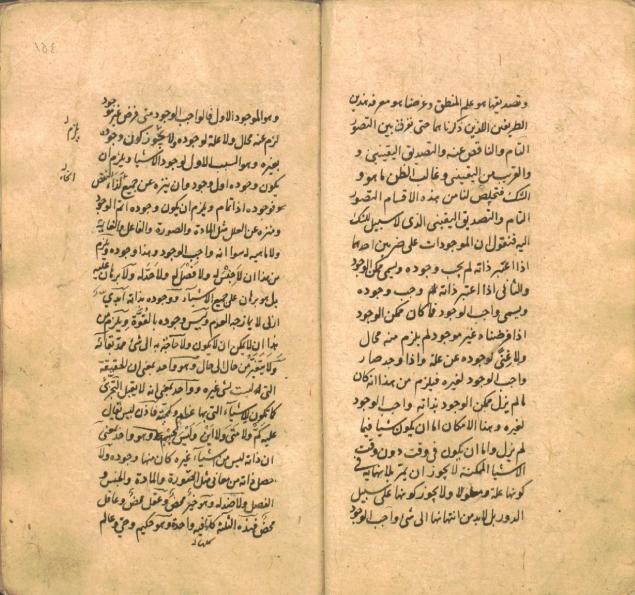 وتصديقها هو علم المنطق وغرضنا هو معرفة هذين
الطريقين اللذين ذكرناهما حتى نفرق بين التصور
التام والناقص عنه والتصديق اليقيني و
والقريب من اليقيني وغالب الظن ما هو و
الشك فتخلص لنا من هذه الاقسام التصور
التام والتصديق اليقيني الذى لا سبيل للشك
اليه فنقول ان الموجودات على ضربين احدهما
اذا اعتبر ذاته لم يجب وجوده ويسمى ممكن الوجود
والثانى اذا اعتبر ذاته وجب وجوده
ويسمى واجب الوجود فما كان ممكن الوجود
اذا فرضناه غير موجود لم يلزم منه محال
ولا غنى لوجوده عن علة واذا وجد صار
واجب الوجود لغيره فيلزم من هذا انه كان
مما لم يزل ممكن الوجود بذاته واجب الوجود
لغيره وهذا الامكان اما ان يكون شيئا فيما
لم يزل واما ان يكون فى وقت دون وقت و
الاشيا الممكنة لا يجوز ان تمر بلا نهاية فى
كونها علة ومعلولا ولا يجوز كونها على سبيل
الدور بل لا بد من انتهائها الى شئ واجب الوجود
١٥٤
وهو الموجود الاول فالواجب الوجود متى فرض غير موجود
لزم عنه محال ولا علة لوجوده ولا يجوز كون وجوده
بغيره وهو السبب الاول لوجود الاشياء ويلزم ان
يكون وجوده اول وجود وان ينزه عن جميع انحاء النقص
فوجوده اذا تام ويلزم ان يكون وجوده اتم الوجود
ومنزه عن العلل مثل المادة والصورة والفاعل والغاية
ولا ماهية له سوا انه واجب الوجود وهذا وجوده ويلزم
من هذا ان لا جنس له ولا فصل له ولا حد له ولا برهان عليه
بل هو برهان على جميع الاشياء ووجوده بذاته ابدى
ازلى لا يمازجه العدم وليس وجوده بالقوة ويلزم من
هذا ان لا يمكن ان لا يكون ولا حاجة به الى شئ يمد بقائه
ولا يتغير من حال الى حال وهو واحد بمعنى ان الحقيقة
التى له ليست لشئ غيره وواحد بمعنى انه لا يقبل التجزى
كما تكون الاشياء التى لها عظم وكمية فاذن ليس يقال
عليه كم ولا متى ولا اين وليس بجسم وهو واحد بمعنى
ان ذاته ليس من اشياء غيره كان منها وجوده ولا
حصل ذاته من معانى مثل الصورة والمادة والجنس و
الفصل ولا ضد له وهو خير محض وعقل محض وعاقل
محض وهذه الثلثة كلها فيه واحدة وهو حكيم وحى وعالم
يلزم